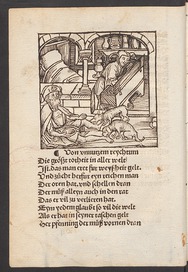 ¶ Von vnnutzem reychtum
Die größt torheit in aller welt
Ist das man eret für weyßheit gelt
Vnd zücht herfür eyn reichen man
Der oren hat, vnd schellen dran
Der müß alleyn auch in den rat
Das er vil zů verlieren hat
Eym yedem glaubt so vil die welt
Als er hat in seyner taschen gelt
Her pfenning der müß vornen dran